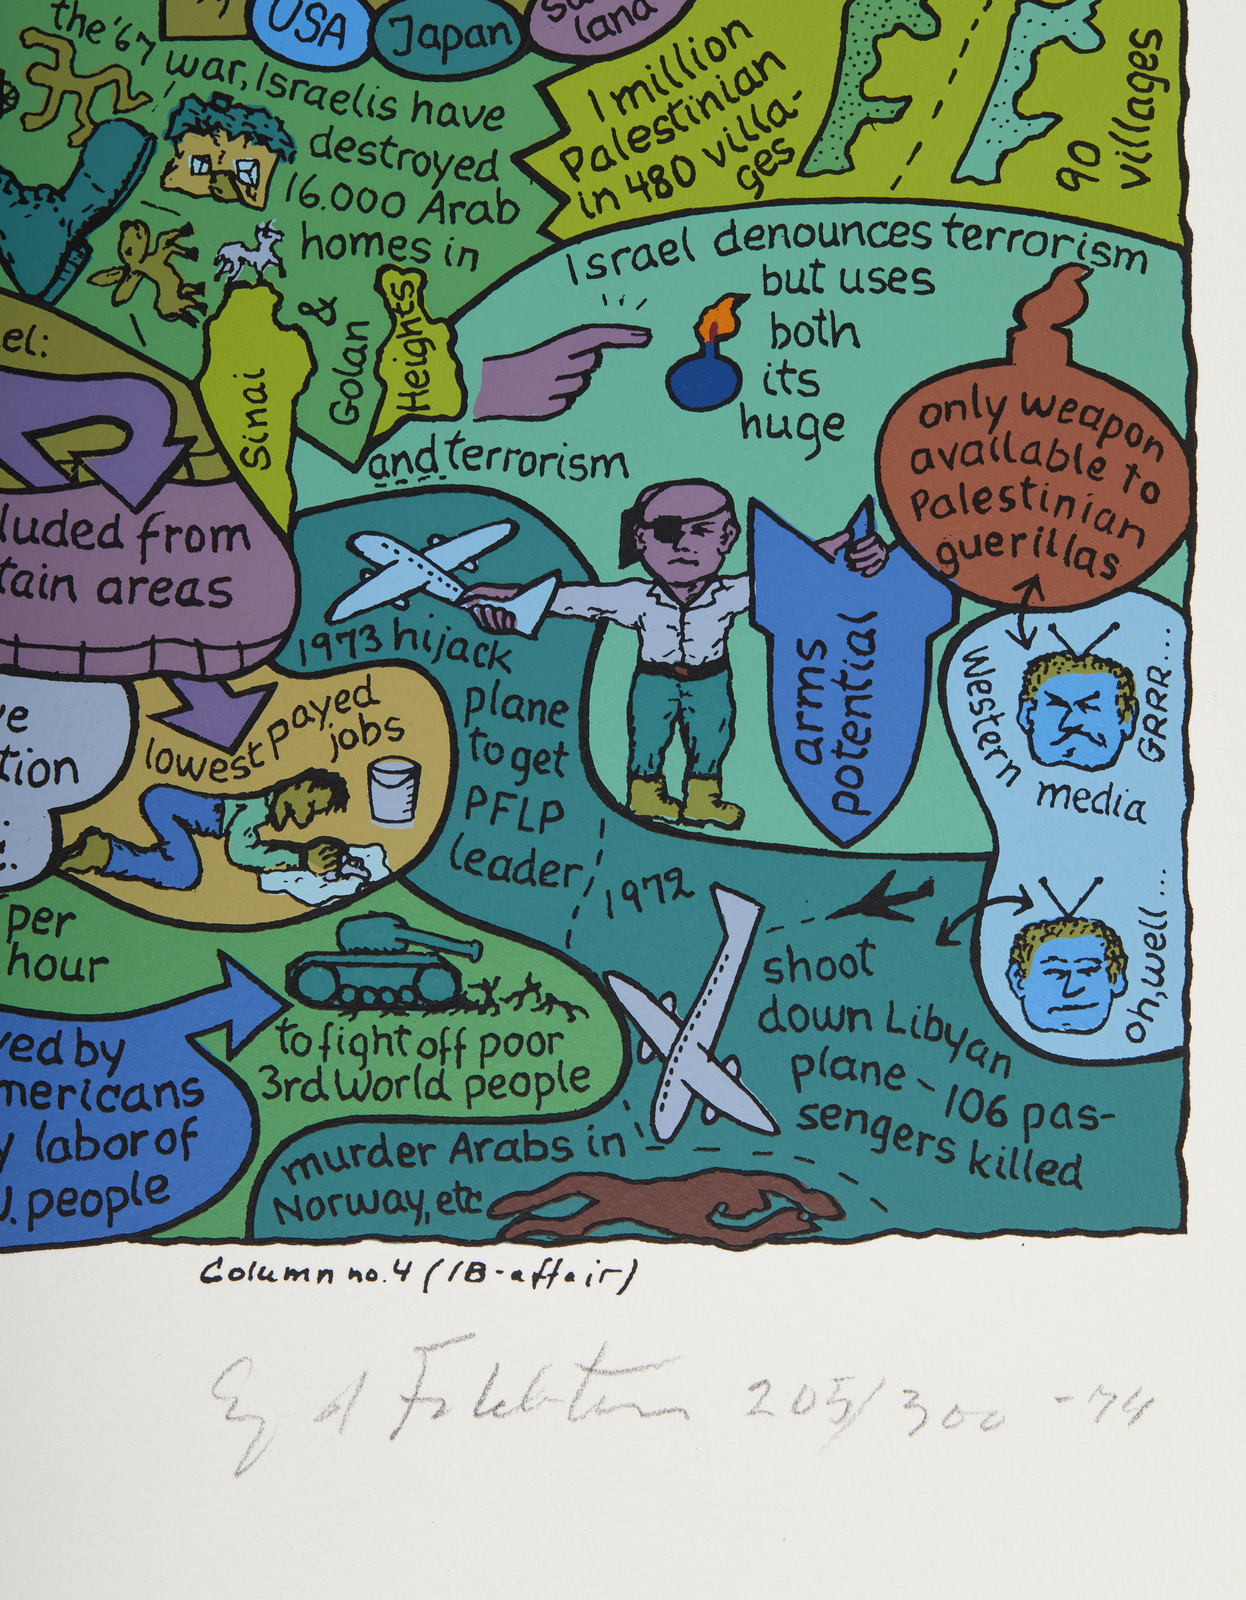 USA
Japan
land
the '67 war, Israelis have
destroyed
16.000 Arab
homes in
Sinai
&
Golan
Heights
1 million
Palestinian
in 480 villa-
ges
90
villages
Israel denounces terrorism
but uses
both
its
huge
and terrorism
arms
potential
only weapon
available to
Palestinian
guerillas
western
media
GRRR....
oh, well ...
el:
luded from
tain areas
lowest payed
jobs
ve
tion
per
hour
ved by
mericans
y labor of
people
to fight off poor
3rd World people
1973 hijack
plane
to get
PFLP
leader,
1972
shoot
down Libyan
plane ~ 106 pas-
sengers killed
murder Arabs in
Norway, etc
Column no. 4 (IB-affair)
205/300 -74